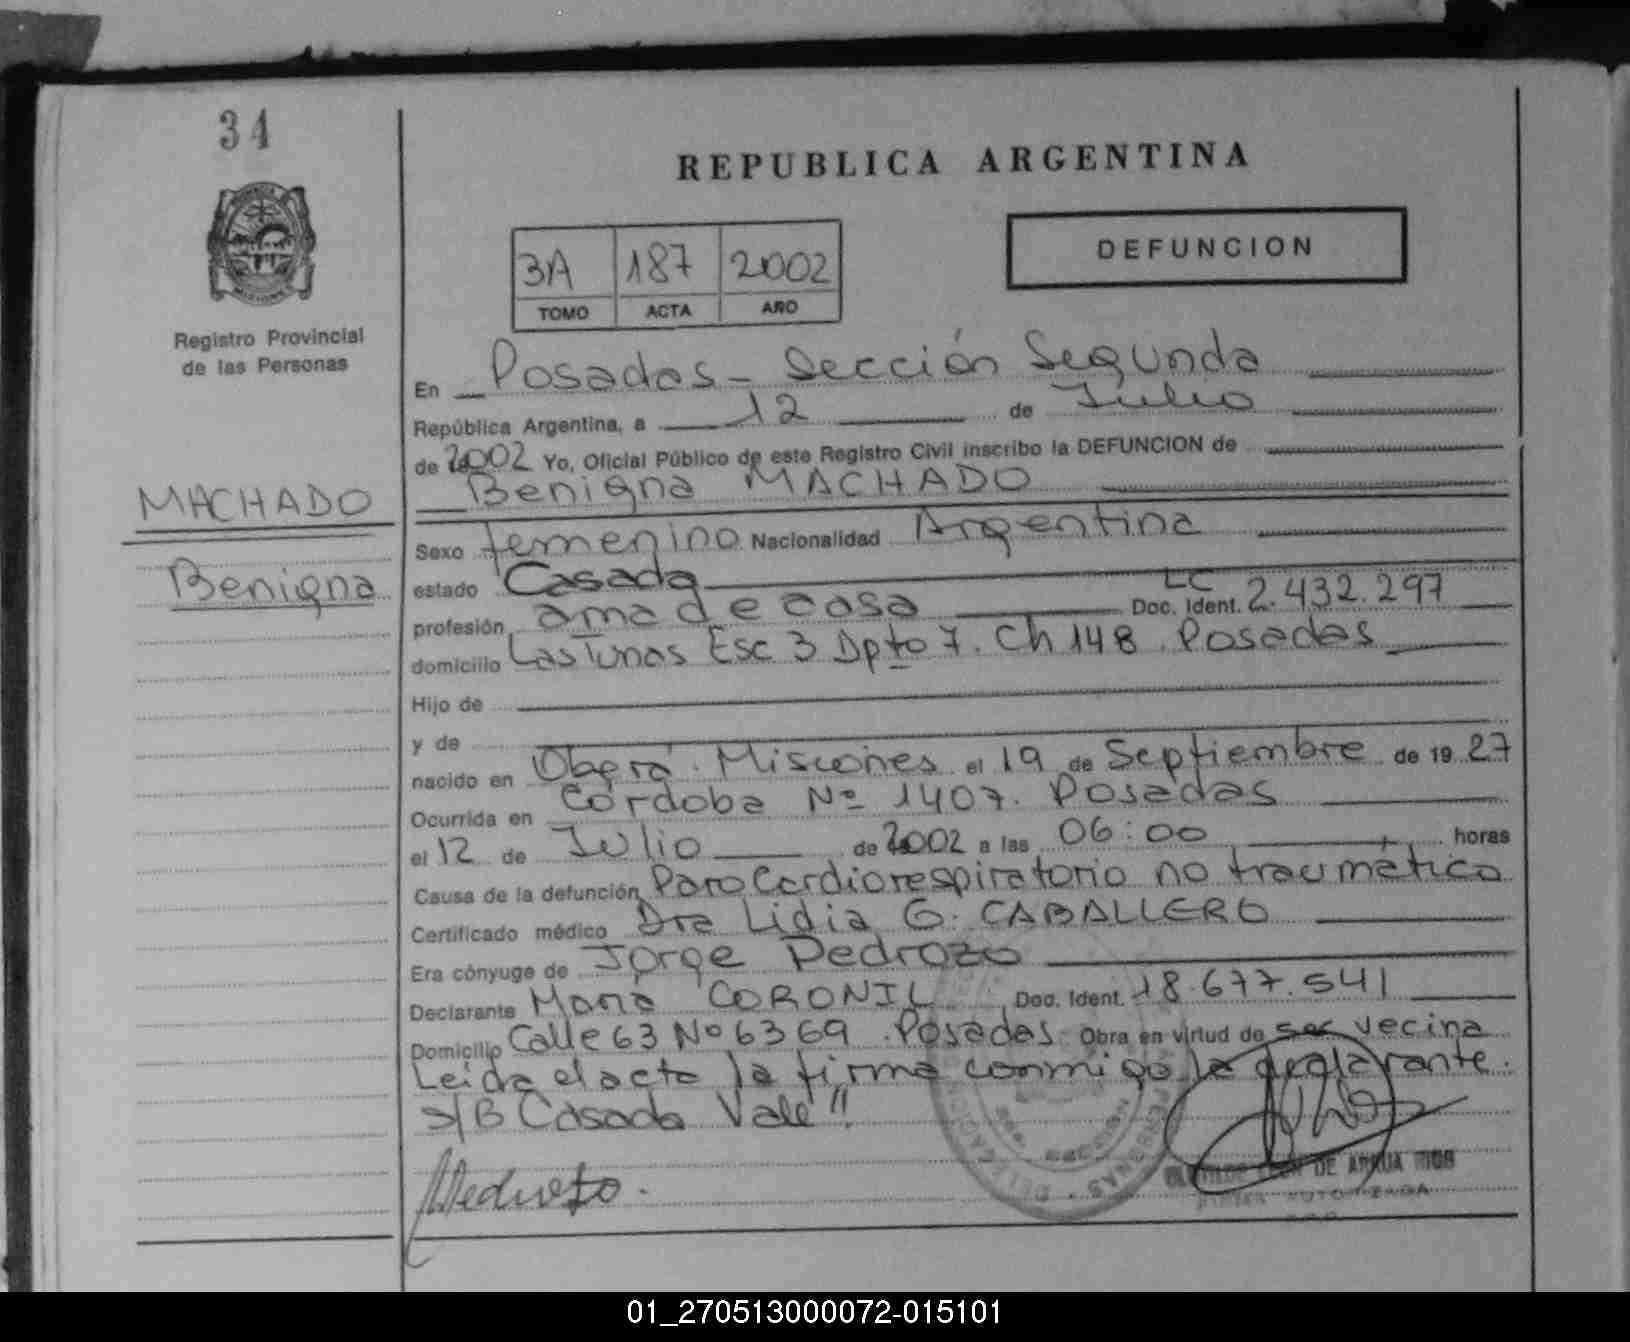 34
Registro Provincial
de las Personas
MACHADO
Benigna
REPUBLICA ARGENTINA
3A 187 2002
TOMO ACTA AÑO
DEFUNCION
En Posadas - Sección Segunda
República Argentina, a 12 de Julio
de 2002 Yo, Oficial Público de este Registro Civil inscribo la DEFUNCION de
Benigna MACHADO
Sexo femenino Nacionalidad Argentina
estado Casada
profesión ama de casa Doc. Ident. LC 2.432.297
domicilio Las Tunas Esc 3 Dpto 7. Ch 148. Posadas
Hijo de
y de
nacido en Oberá. Misiones el 19 de Septiembre de 19 27
Ocurrida en Córdoba Nº 1407. Posadas
el 12 de Julio de 2002 a las 06:00 horas
Causa de la defunción Paro Cardiorespiratorio no traumático
Certificado médico Dra Lidia G. CABALLERO
Era cónyuge de Jorge Pedrozo
Declarante María CORONIL Doc. Ident. 18.677.541
Domicilio Calle 63 Nº 6369. Posadas. Obra en virtud de ser vecina
Leida el acta la firma conmigo la declarante.
s/B Casada Vale"
DE
01_270513000072-015101